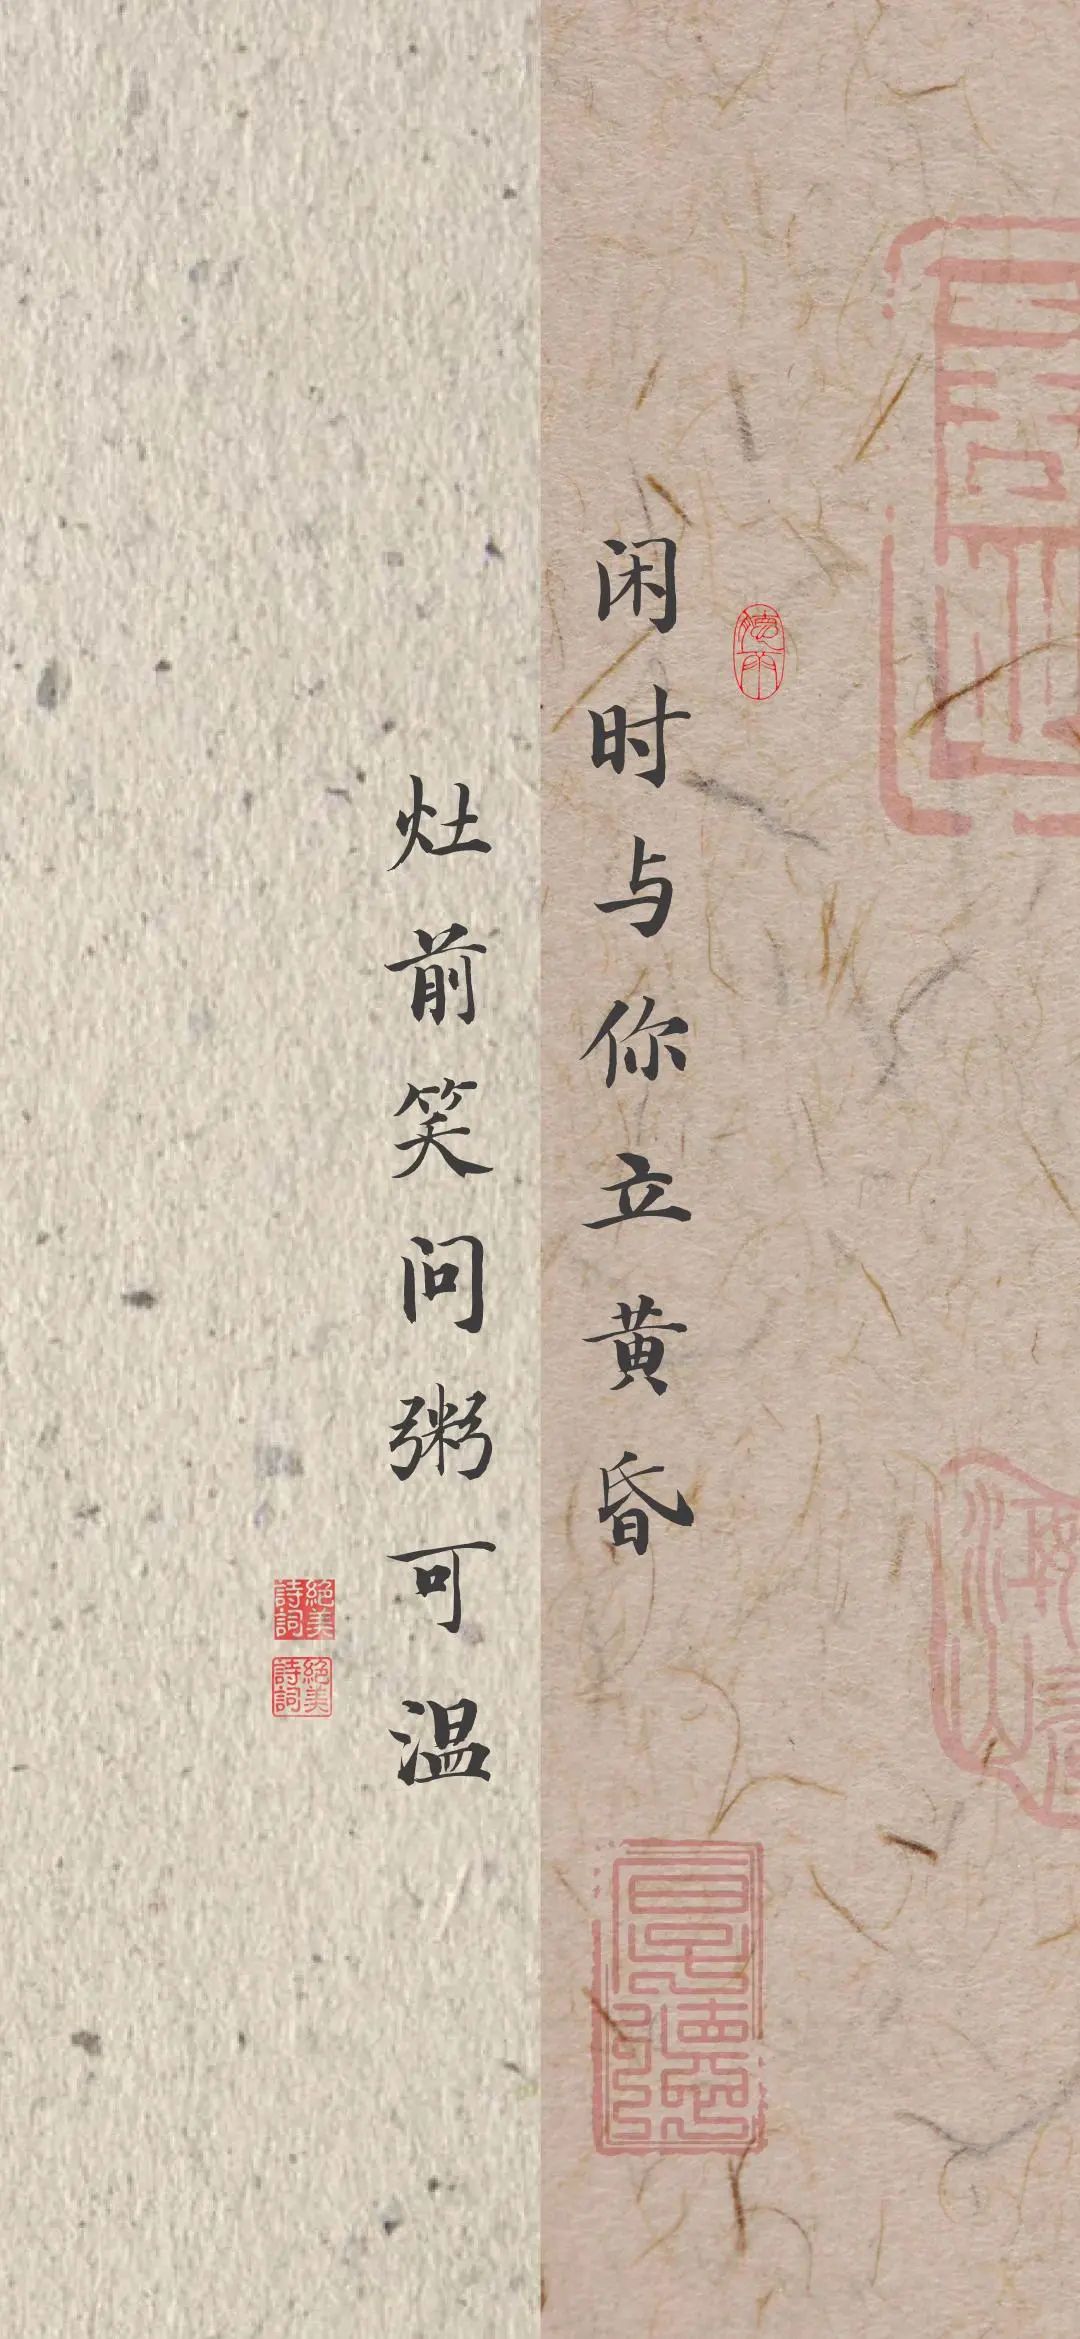 闲时与你立黄昏
灶前笑问粥可温
絕美
詩詞
絕美
詩詞